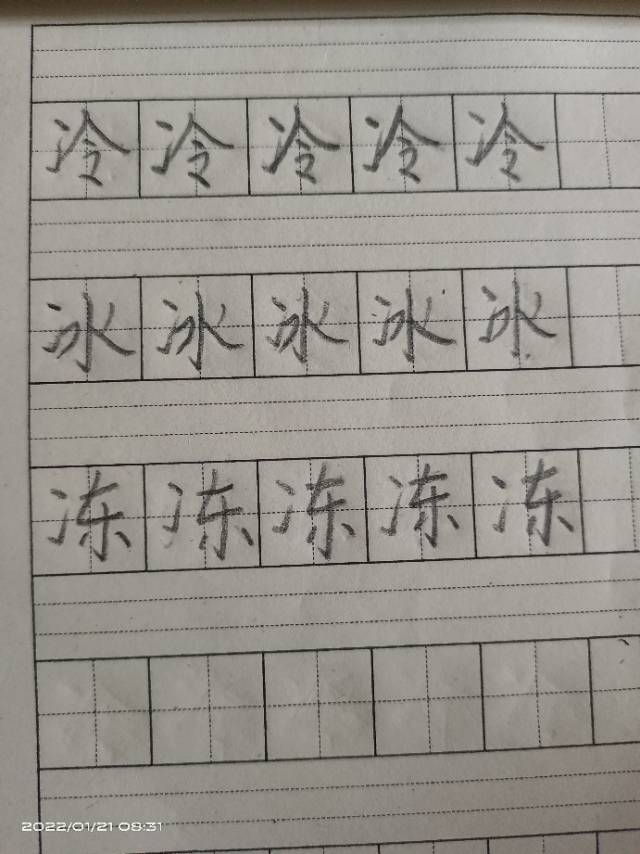 冷冷冷冷冷
冰冰冰冰冰
冻冻冻冻冻
2022/01/21 08:31